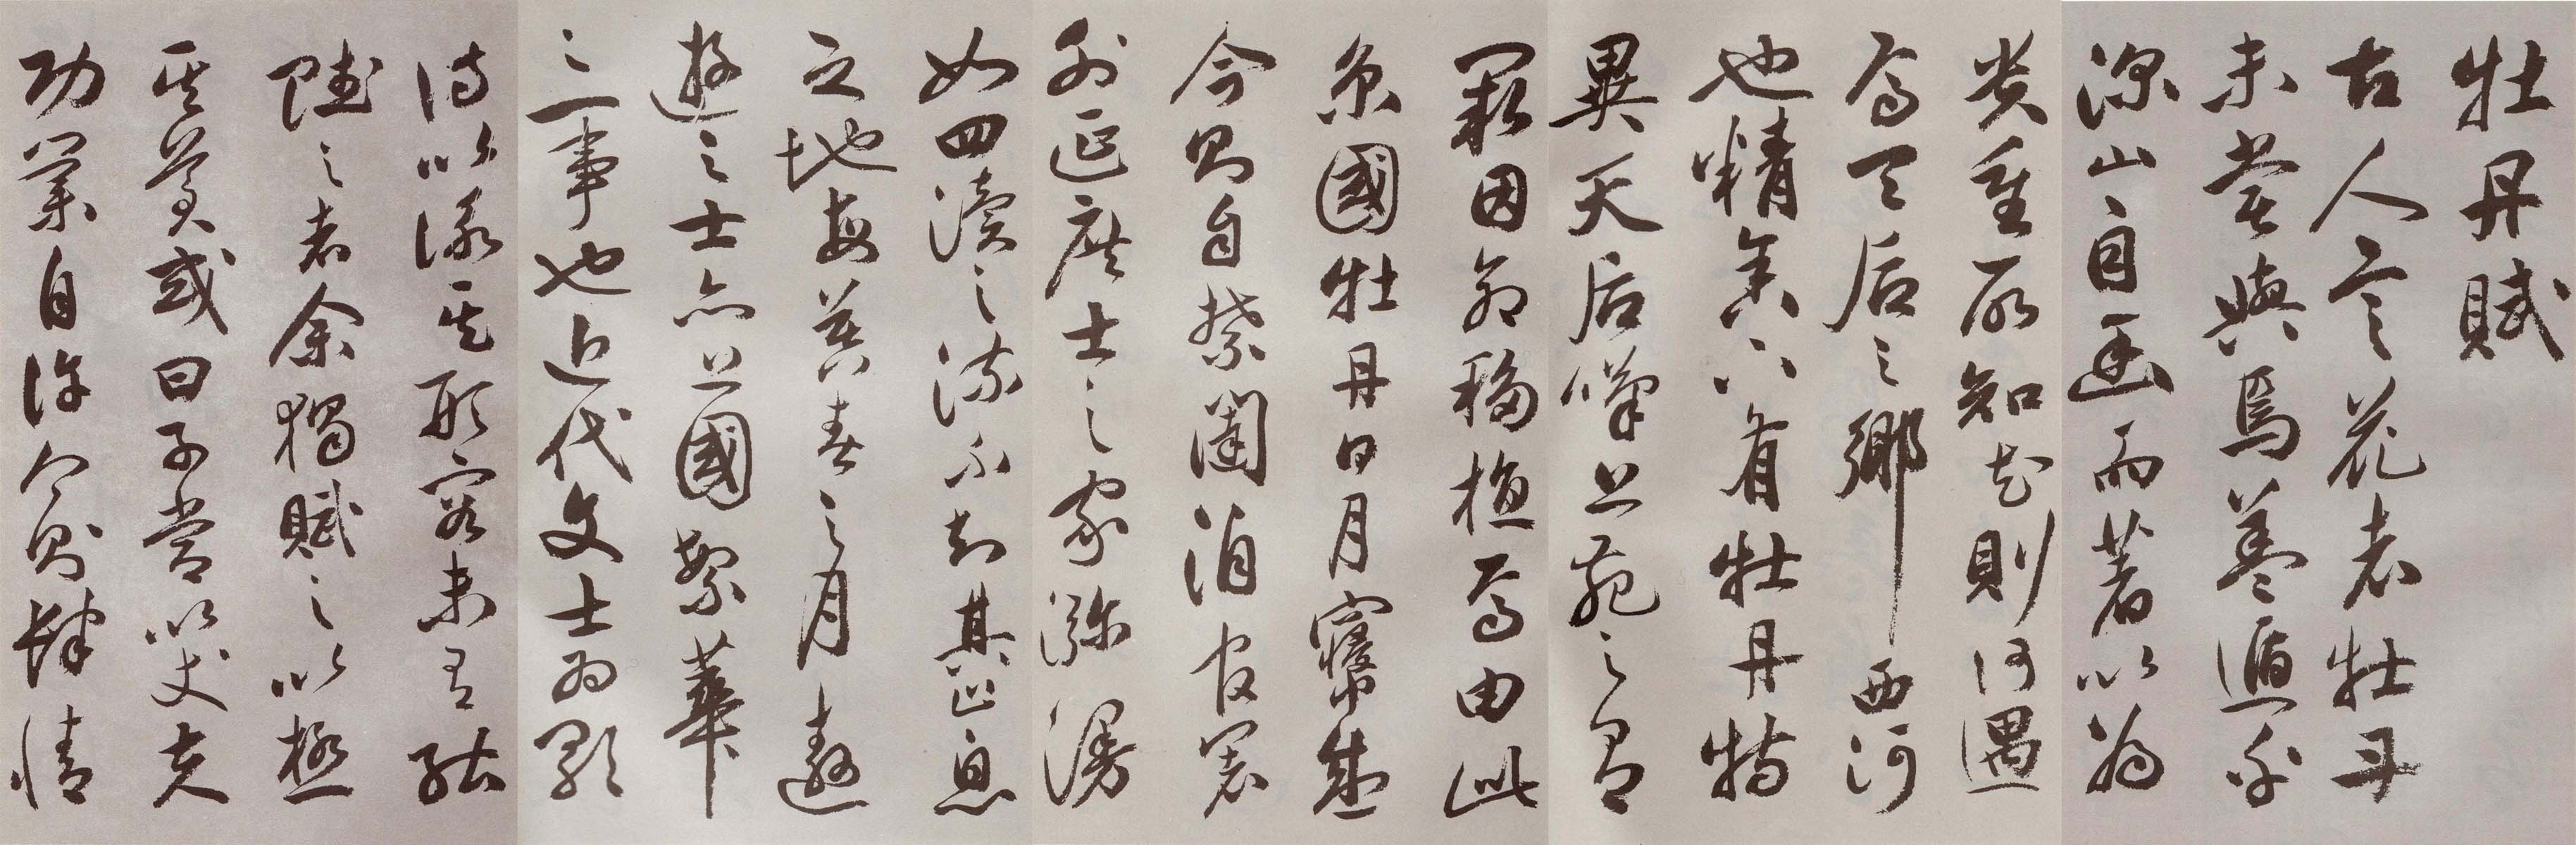 牡丹賦
古人言花者牡丹
未嘗與焉蓋遁乎
深山自幽而著以為
貴重所知花則何遇
焉天后之鄉西河
也精舍下有牡丹特
異天后嘆上苑之有
闕因命移植焉由此
京國牡丹日月寖盛
今則自禁闥洎官署
外延庶士之家瀰漫
如四瀆之流不知其止息
之地每暮春之月遨
遊之士亦上國繁華
之一事也近代文士為歌
詩以詠其形容未有能
賦之者余獨賦之以極
其美或曰子常以丈夫
功業自許今則肆情